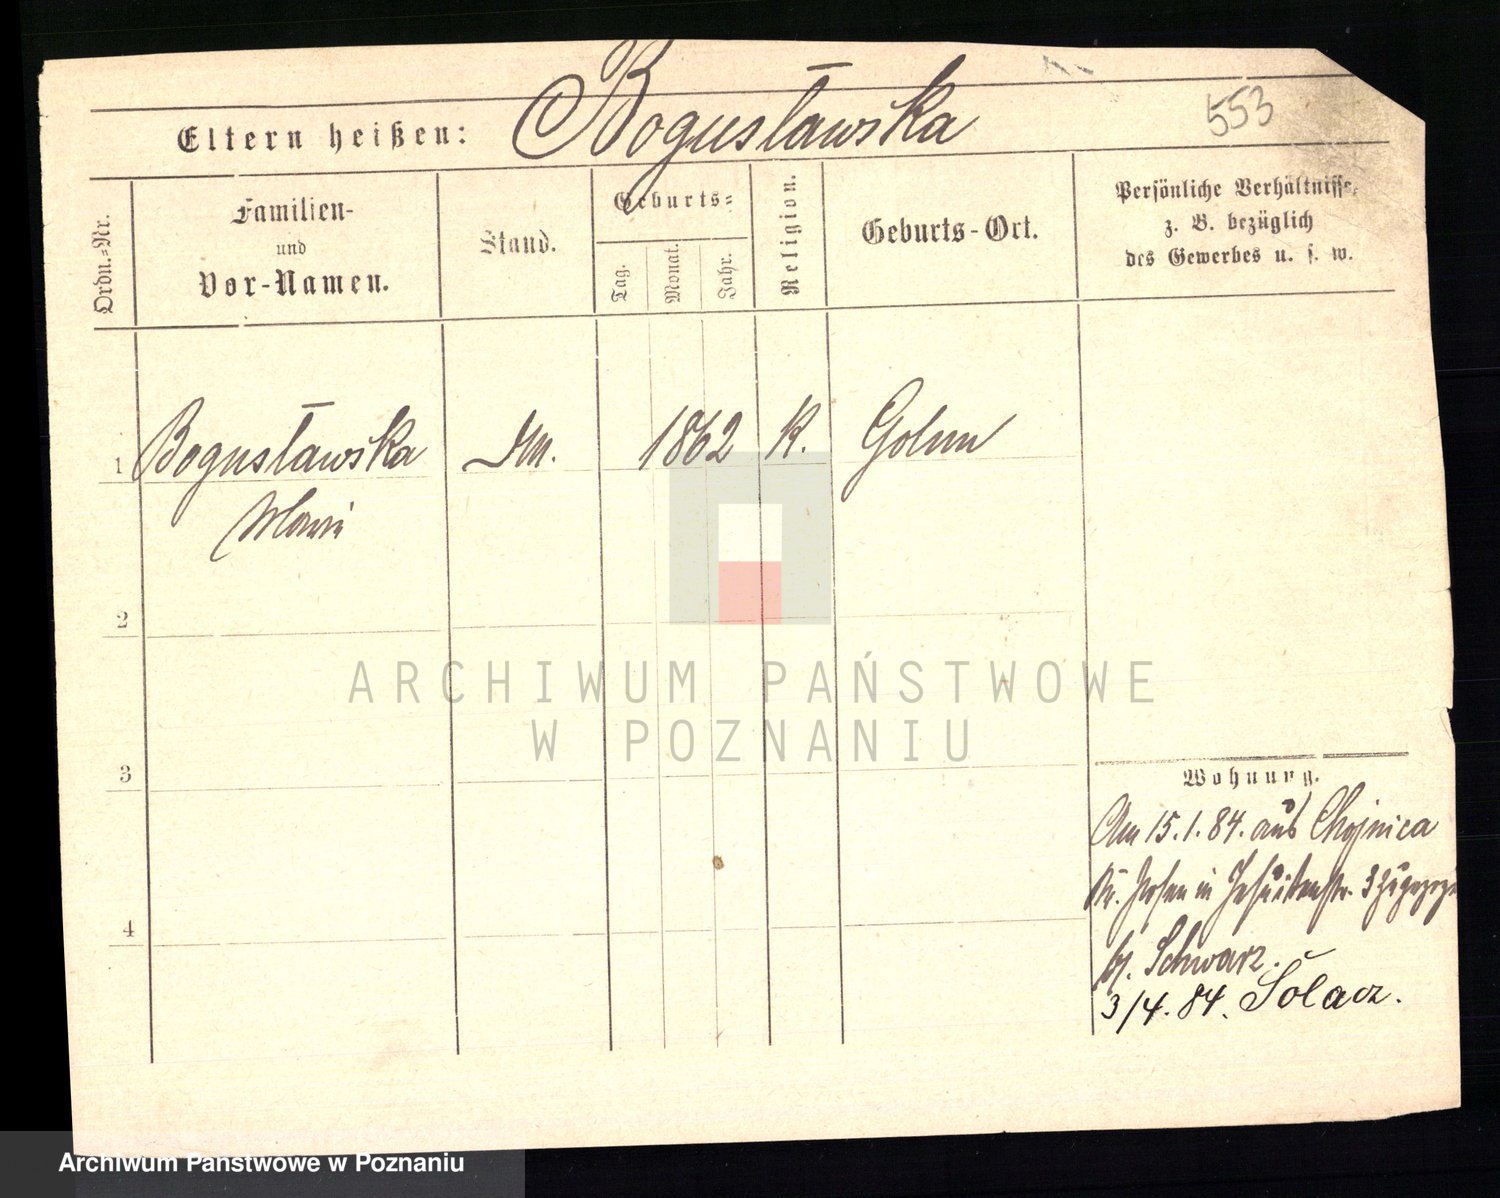 553
Eltern heißen: Bogusławska
Ordn.-Nr.
Familien-
und
Vor-Namen.
Stand.
Geburts-
Tag.
Monat.
Jahr.
Religion.
Geburts-Ort.
Persönliche Verhältnisse,
z. B. bezüglich
des Gewerbes u. s. w.
1 Bogusławska 1862 K.
2
3
4
ARCHIWUM PAŃSTWOWE
W POZNANIU
Wohnung.
Am 15.1.84. aus Chojnica
Kr. Posen in Jesuitenstr. 3
bei Schwarz.
3/4. 84. Solacz.
Archiwum Państwowe w Poznaniu